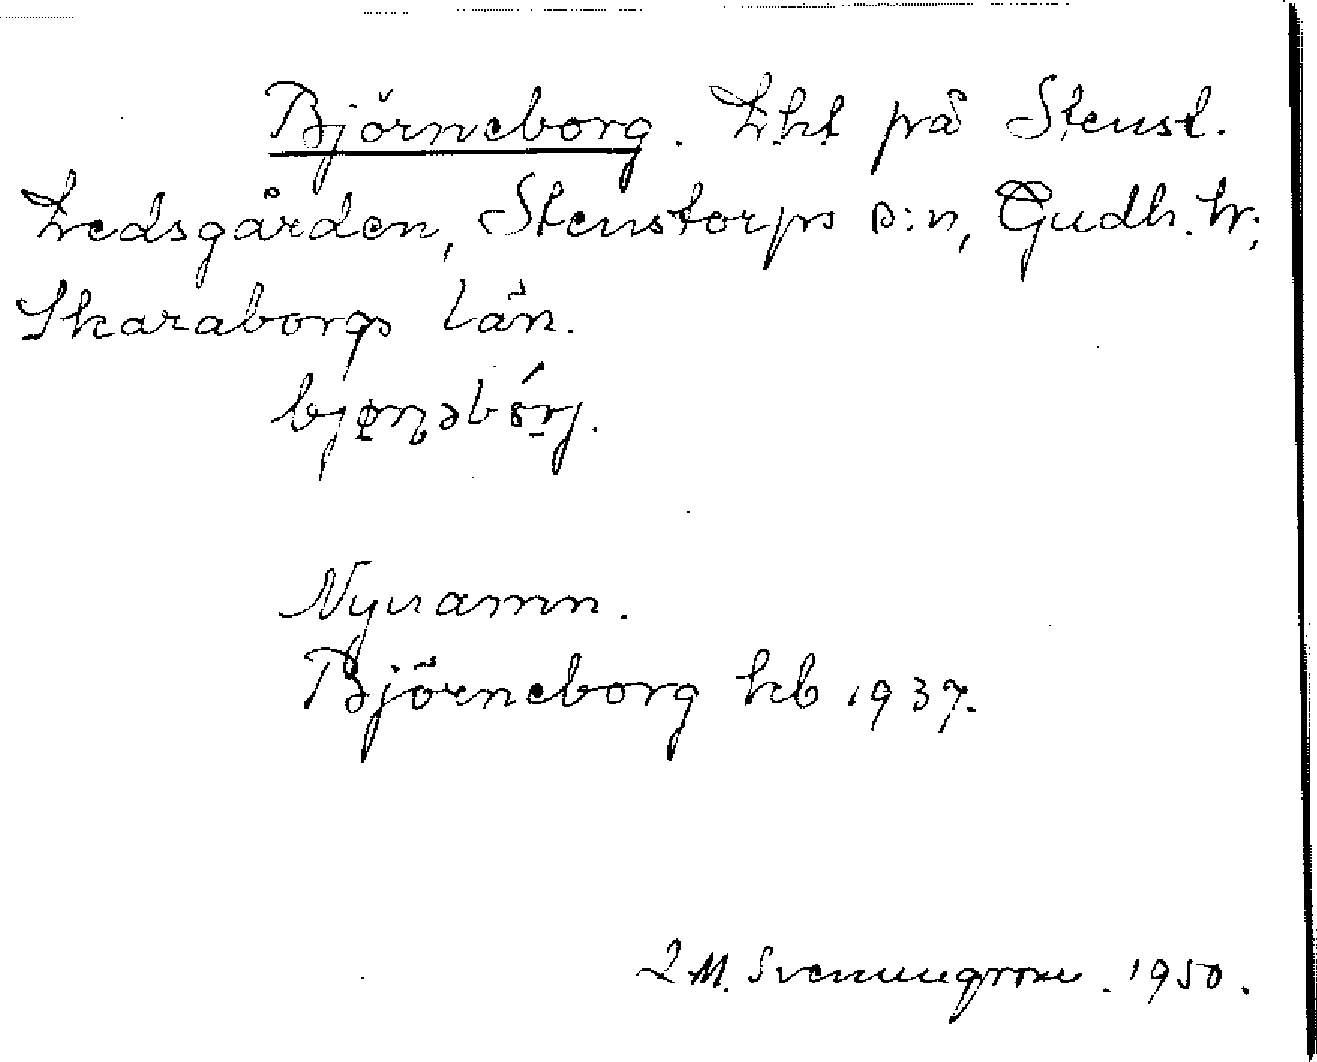 Björneborg. Lht på Stenst.
Ledsgården, Stenstorps s:n, Gudh. hr;
Skaraborgs län.
Nynamn.
Björneborg kb 1937.
1950.